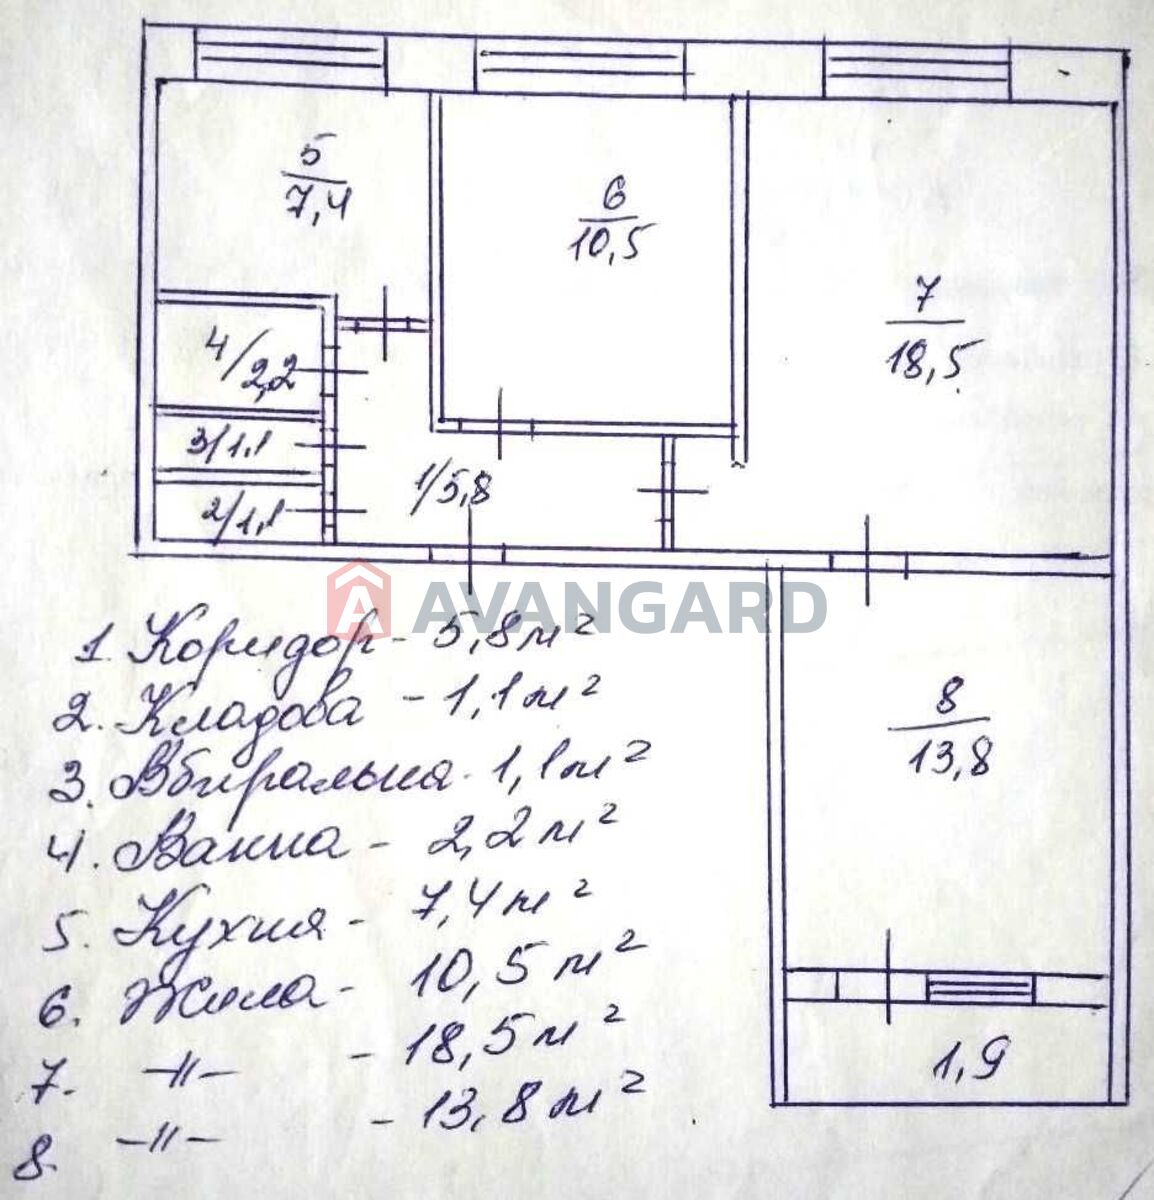 5
7,4
6
10,5
7
18,5
4/2,2
3/1.1
1/5,8
2/1,1
AVANGARD
1. Коридор - 5,8 м²
2. Кладова - 1,1 м²
3. Вбиральня - 1,1 м²
4. Ванна - 2,2 м²
5. Кухня - 7,4 м²
6. Жила - 10,5 м²
7. -//- - 18,5 м²
8. -//- - 13,8 м²
8
13,8
1,9